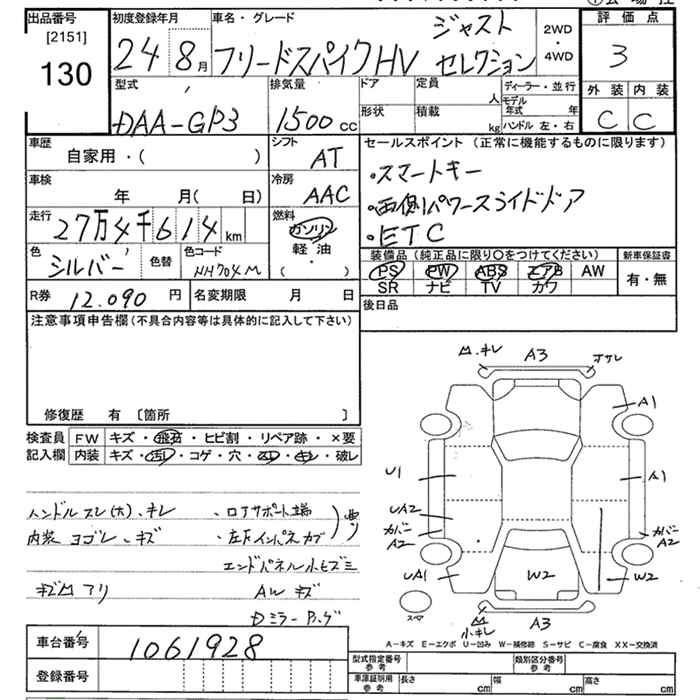 出品番号 初度登録年月 車名・グレード ジャスト 2WD ・ 4WD 評価点
[2151] 130 24 8月 フリードスパイクHV セレクション 3
型式 排気量 ドア 定員 人 ディーラー・並行 外装 内装
DAA-GP3 1500cc 形状 積載 kg モデル年式 年 ハンドル 左・右 C C
車歴 シフト セールスポイント(正常に機能するものに限ります)
自家用・( ) AT
・スマートキー
車検 冷房
年 月( 日) AAC
・両側パワースライドドア
走行 燃料
27万4千614km ガソリン
・ETC
軽・油
( )
色 色替 色コード
シルバー NH704M
装備品(純正品に限り○をつけてください) 新車保証書
PS PW ABS エアB AW 有・無
SR ナビ TV カワ
R券 12.090円 名変期限 月 日
後日品
注意事項申告欄(不具合内容等は具体的に記入して下さい)
修復歴 有 [箇所 ]
検査員 FW キズ・飛石・ヒビ割・リペア跡・×要
記入欄 内装 キズ・汚レ・コゲ・穴・スレ・キレ・破レ
ハンドルスレ(大)、キレ
内装 ヨゴレ、キズ
・ロアサポート端
・左下インパネカブ
エンドパネル小キズミ
AWキズ
キズ凹アリ
Dミラー
凹.キレ A3
A1
U1 A1
UA2
カバーA2 カバーA2
UA1 W2 W2
スペア
凹 小キレ A3
A-キズ E-エクボ U-凹み W-補修跡 S-サビ C-腐食 XX-交換済
車台番号 1061928
登録番号
型式指定番号 参考 類別区分番号 参考
車庫証明用 参考 長さ cm 幅 cm 高さ cm